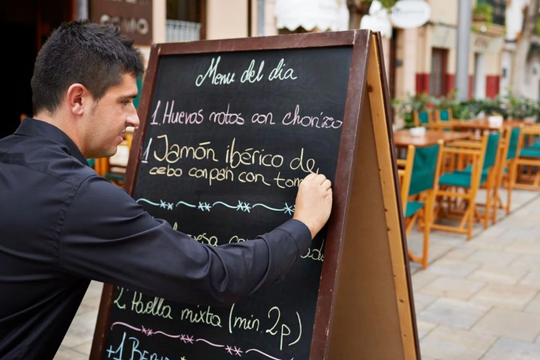 Menu del dia
1 Huevos rotos con chorizo
1 Jamón ibérico de
cebo conpan con tom
2 Paella mixta (min. 2p)
+1